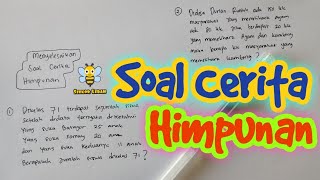 Menyelesaikan
Soal Cerita
Himpunan
① Di kelas 7i terdapat sejumlah siswa
Setelah didata ternyata diketahui
Yang suka Bawang 25 anak
Yang suka 20 anak
dan yang suka keduanya 11 anak
Berapakah Jumlah siswa di kelas 7i ?
② Pada Dusun ada 151 kk
masyarakat yang memelihara Ayam
ada kk jika terdapat 50 kk
yang memelihara Ayam dan kambing
maka berapa kk masyarakat yang
memelihara kambing ?
Soal Cerita
Himpunan